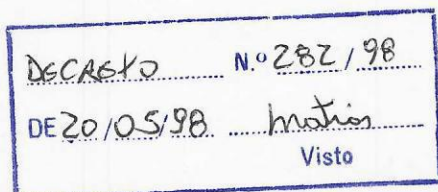 DECRETO N.º 282/98
DE 20/05/98 Matias
Visto